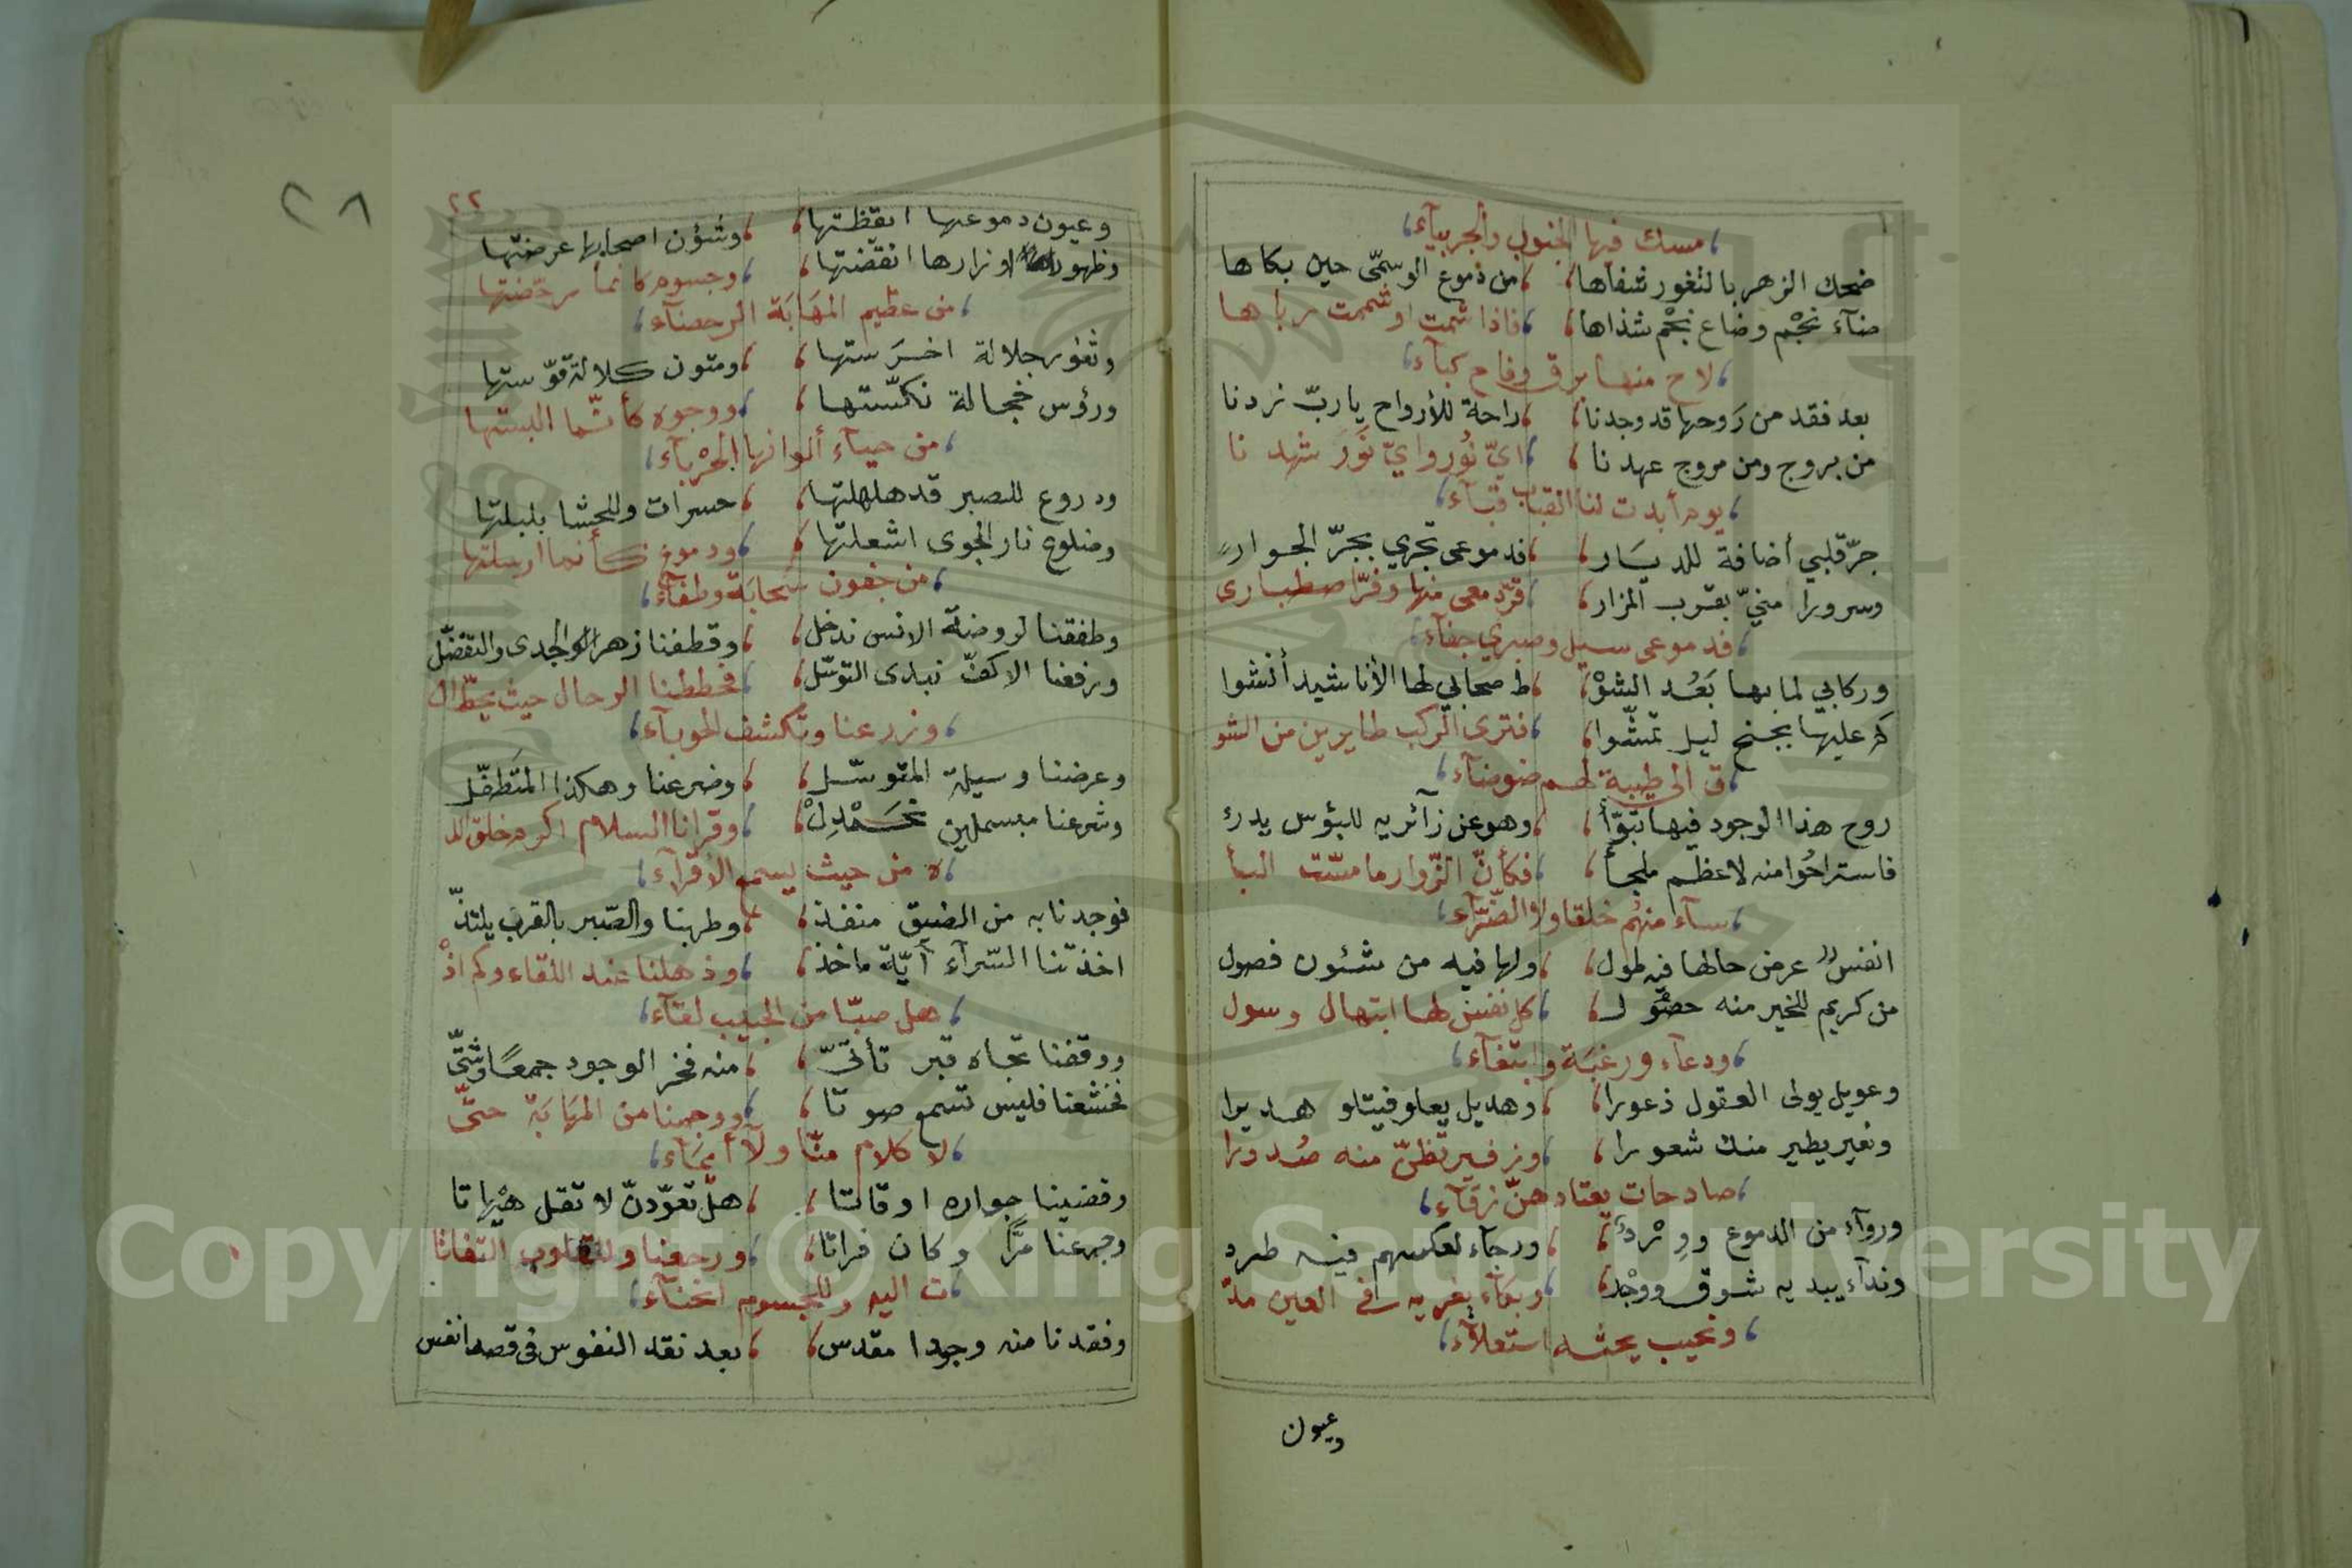 مسك فيها الجنوب والجربيآء
ضحك الزهر بالثغور شفاها ، من دموع الوسمّى حين بكاها
ضآء نجْم وضاع نجْم شذاها ، فاذا شمت او شممت رباها
لاح منها برق وفاح كبآء
بعد فقد من رَوحها قد وجدنا ، راحة للأرواح يا ربّ زدنا
من بروج ومن مروج عهدنا ، ايّ نُور وايّ نَوَر شهدنا
يوم أبدت لنا القباب قبآء
جرّ قلبي أضافة للديَار ، فدموعى تجري بجرّ الجوار
وسرورا منيّ بقرب المزار ، قرّ دمعى منها وفرّ اصطبارى
فدموعى سيل وصبري جفآء
وركابي لما بها بَعُد الشوْ ، ط صحابي لها الأناشيد أنشوا
كم عليها بجنح ليل تمشّوا ، فترى الركب طايرين من الشو
ق الى طيبة لهم ضوضآء
روح هذا الوجود فيها تبوّأ ، وهو عن زآئريه للبؤس يدرء
فاستراحُوا منه لاعظم ملجأ ، فكأنّ الزّوار ما مسّت البأ
سآء منهُم خلقا ولا الضّرآء
انفس عرض حالها فيه طول ، ولها فيه من شئون فصول
من كريم للخير منه حصُول ، كل نفس لها ابتهال وسول
ودعآء ورغبَة وابتغآء
وعويل يولى العقول ذعورا ، وهديل يعلو فيتلو هديرا
ونفير يطير منك شعورا ، وزفير تظنّ منه صُدورا
صادحات يعتادهنّ زقآء
وروآء من الدموع وورْد ، ورجآء لعكسهم فيه طرد
وندآء يبديه شوق ووجْد ، وبكآء يغريه فى العين مدّ
ونحيب يحثه استعلآء
وعيون
٢٨
٢٢
وعيون دموعها ايقظتها ، وشؤن اصحابها عرضتها
وظهور اوزارها انقضتها ، وجسوم كانما رحّضتها
من عظيم المهَابَة الرحضآء
وثغور جلالة اخرَستها ، ومتون كلالة قوّستها
ورؤس خجالة نكسّتها ، ووجوه كأنّما البستها
من حيآء ألوانها الحرْبآء
ودروع للصبر قد هلهلتها ، حسرات وللحشا بلبلتها
وضلوع نار الجوى اشعلتها ، ودموع كأنما ارسلتها
من جفون سَحابَة وطفآء
وطفقنا لروضة الانس ندخل ، وقطفنا زهر الجدى والتفضّل
ورفعنا الاكفّ نبدى التوسّل ، فحططنا الرحال حيث يحطّ ال
وزر عنا وتكشف الحوبآء
وعرضنا وسيلة المتوسّل ، وضرعنا وهكذا المتَطفّل
وشرعنا مبسملين نحَمْدِلْ ، وقرانا السلام اكرم خلق الل
ه من حيث يسمع الاقرآء
فوجدنا به من الضيق منفذ ، وطربنا والصّبر بالقرب يلتذّ
اخذتنا السّرآء آيّة ماخذ ، وذهلنا عند اللقاء وكم اذْ
هل صبّا من الحبيب لقآء
ووقفنا تجاه قبر تأتىّ ، منه فخر الوجود جمعًا وشتّى
فخشعنا فليس تسمع صوتا ، ووجمنا من المهَابَة حتّى
لا كلام منّا ولآ أيمَآء
وقضينا جواره اوقاتا ، هل تعوّدنّ لا تقل هيْهاتا
وجرعنا مرًّا وكان فراتا ، ورجعنا وللقلوب التفاتا
ت اليه وللجسوم انحنآء
وفقدنا منه وجودا مقدس ، بعد نقد النفوس فى قصد انفس
Copyright © King Saud University